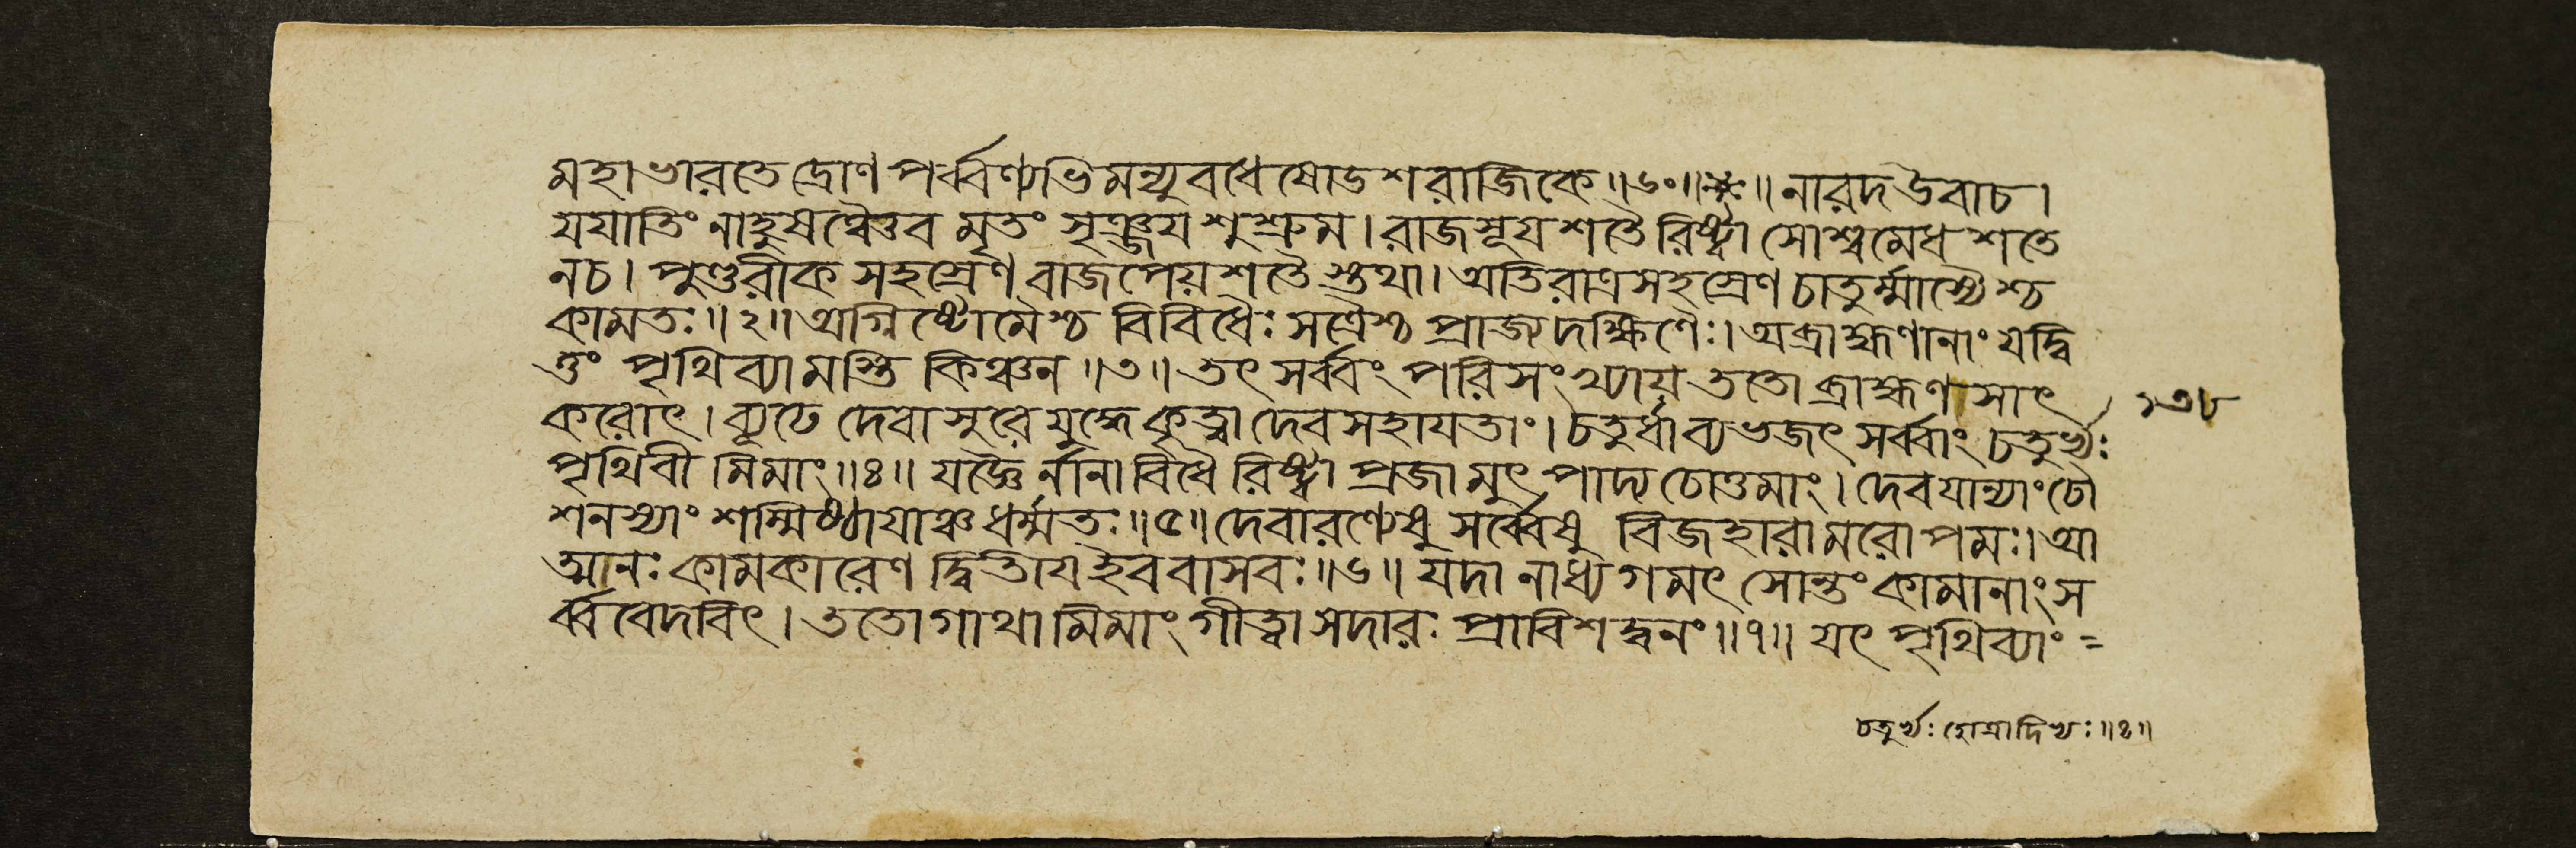 মহাভারতে দ্রোণপর্ব্বণ্যভিমন্যুবধে ষোডশরাজিকে॥৬০॥ ॥নারদ উবাচ।
যযাতিং নাহুষঞ্চৈব মৃতং সৃঞ্জয শুশ্রুম। রাজসূয শতৈ রিষ্ট্বা সোশ্বমেধ শতে
নচ। পুণ্ডরীক সহস্রেণ বাজপেয় শতৈ স্তথা। অতিরাত্র সহস্রেণ চাতুর্ম্মাস্যৈশ্চ
কামতঃ॥২॥ অগ্নিষ্টোমৈশ্চ বিবিধৈঃ সত্রৈশ্চ প্রাজ্য দক্ষিণৈঃ। অব্রাহ্মণানাং যদ্বি
ত্তং পৃথিব্যামস্তি কিঞ্চন॥৩॥ তৎ সর্ব্বং পরিসংখ্যায় ততো ব্রাহ্মণ সাৎ
করোৎ। ব্যূঢে দেবাসুরে যুদ্ধে কৃত্বা দেব সহাযতাং। চতুর্ধা ব্যভজৎ সর্ব্বাং চতুর্ভ্যঃ
পৃথিবী মিমাং॥৪॥ যজ্ঞৈ র্নানা বিধৈ রিষ্ট্বা প্রজা মুৎপাদ্য চোত্তমাং। দেবযান্যাং চৌ
শনস্যাং শর্ম্মিষ্ঠাযাঞ্চ ধর্ম্মতঃ॥৫॥ দেবারণ্যেষু সর্ব্বেষু বিজহারামরোপমঃ। আ
ত্মানঃ কামকারেণ দ্বিতীয ইব বাসবঃ॥৬॥ যদা নাধ্যগমৎ সোন্তং কামানাং স
র্ব্ববেদবিৎ। ততো গাথা মিমাং গীত্বা সদারঃ প্রাবিশদ্বনং॥৭॥ যৎ পৃথিব্যাং =
১৩৮
চতুর্ভ্যঃ হোত্রাদিভ্যঃ॥৪॥